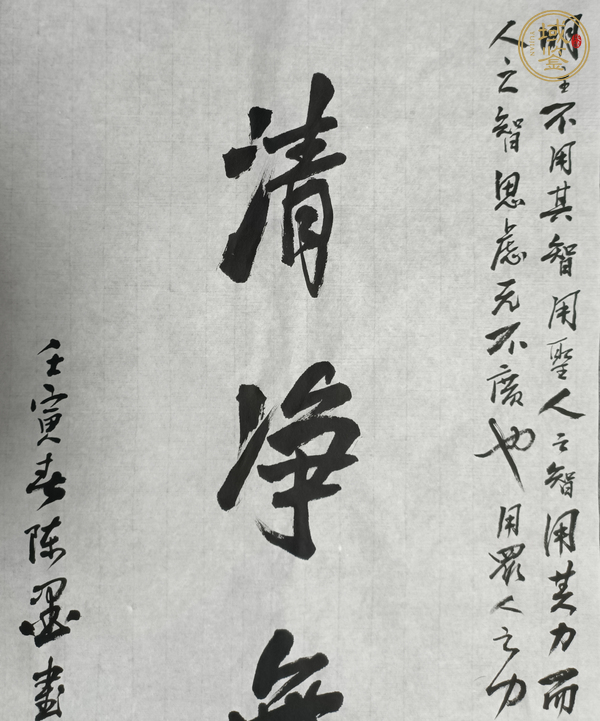 明主不用其智用聖人之智用其力而
人之智思慮无不廣也用眾人之力
清净無
壬寅春陈墨書